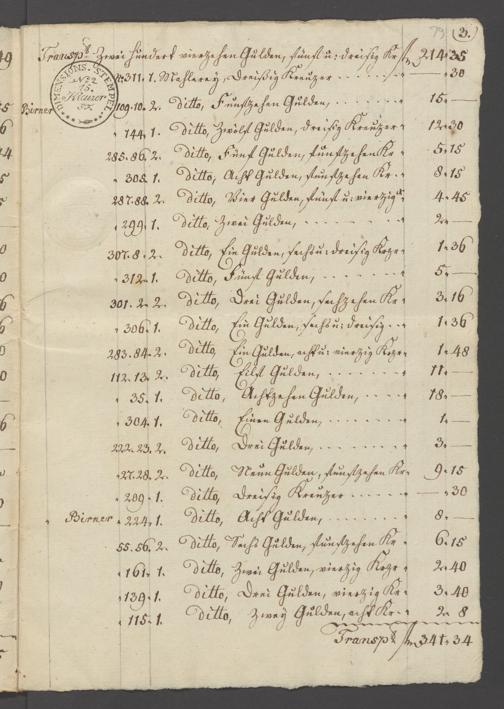 73 2.
Transpt Zwei hundert vierzehen Gulden, fünf u: dreisig Kr 214 „ 35
DIMENSIONS-STEMPEL
15. Kreuzer
No 311. 1. Mahlerey, Dreisig Kreuzer „ 30
Birner 109.10. 2. ditto, Funfzehen Gulden, 15 „ —
„ 144. 1. ditto, Zwölf Gulden, dreisig Kreutzer 12 „ 30
285.86. 2. ditto, Funf Gulden, funfzehen Kr „ 5 „ 15
„ 308. 1. ditto, Acht Gulden, funfzehen Kr „ 8 „ 15
287.88. 2. ditto, Vier Gulden, fünf u: vierzig „ 4 „ 45
„ 299. 1. ditto, Zwei Gulden, 2 „ —
307.8. 2. ditto, Ein Gulden, sechs u: dreisig Krzr „ 1 „ 36
„ 312. 1. ditto, Fünf Gulden, 5 „ —
301.2. 2. ditto, Drei Gulden, sechzehen Kr „ 3 „ 16
„ 306. 1. ditto, Ein Gulden, sechs u: dreisig 1 „ 36
283.84. 2. ditto, Ein Gulden, acht u: vierzig Krzr 1 „ 48
112.13. 2. ditto, Eilf Gulden, 11 „ —
„ 35. 1. ditto, Achtzehen Gulden, 18 „ —
„ 304. 1. ditto, Einen Gulden, 1 „ —
222.23. 2. ditto, Drei Gulden, 3 „ —
„ 27.28. 2. ditto, Neun Gulden, funfzehen Kr 9 „ 15
„ 209. 1. ditto, Dreisig Kreuzer — „ 30
„ Birner „ 224. 1. ditto, Acht Gulden, 8 „ —
55.56. 2. ditto, Sechs Gulden, funfzehen Kr „ 6 „ 15
„ 161. 1. ditto, Zwei Gulden, vierzig Krzr „ 2 „ 40
„ 139. 1. ditto, Drei Gulden, vierzig Kr „ 3 „ 40
„ 115. 1. ditto, Zwey Gulden, acht Kr „ 2 „ 8
Transpt 341 „ 34